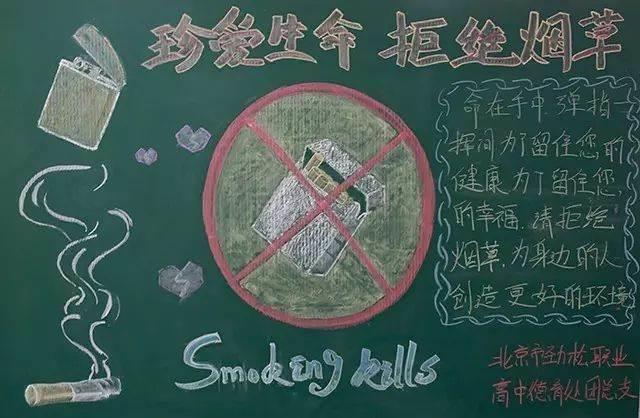 珍爱生命 拒绝烟草
命在手中,弹指一
挥间,为了留住您的
健康,为了留住您
的幸福,请拒绝
烟草,为身边的人
创造更好的环境
Smoking kills
北京市劲松职业
高中德育处团总支